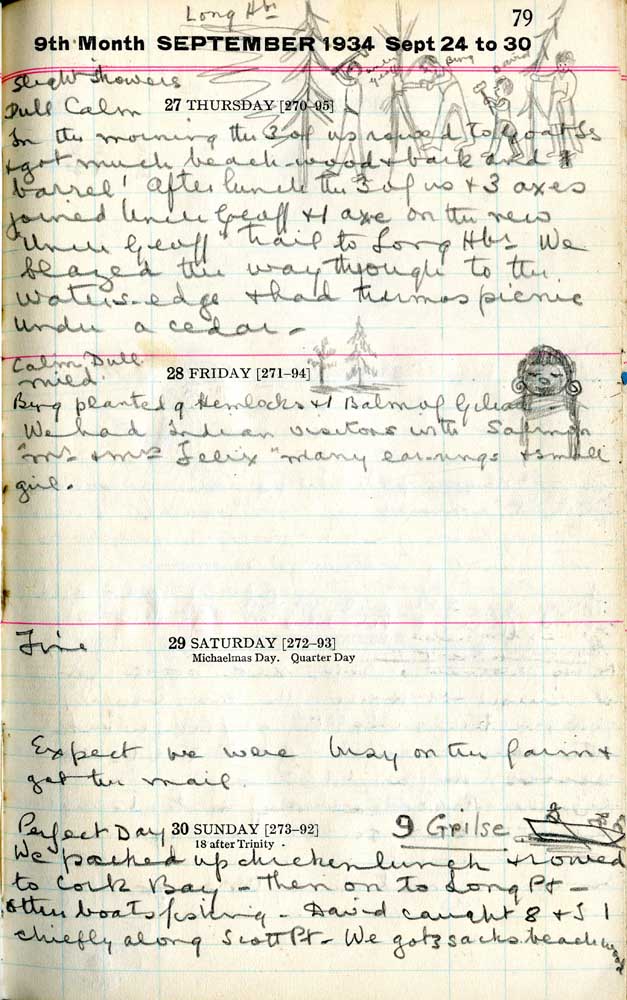 Long Hbr
79
9th Month SEPTEMBER 1934 Sept 24 to 30
Slight Showers
Bing
David
Dull Calm 27 THURSDAY [270–95]
In the morning the 3 of us rowed to Goat Is
& got much beach wood & bark and 1
barrel! After lunch the 3 of us & 3 axes
joined Uncle Geoff & 1 axe on the new
"Uncle Geoff" trail to Long Hbr. We
blazed the way through to the
waters-edge & had thermos picnic
under a cedar -
Calm Dull
mild
28 FRIDAY [271–94]
Bing planted 9 Hemlocks & 1 Balm of Gilead
We had Indian visitors with Salmon
"Mr & Mrs Felix" many ear-rings & small
girl.
Fine 29 SATURDAY [272–93]
Michaelmas Day. Quarter Day
Expect we were busy on the farm &
got the mail
Perfect Day 30 SUNDAY [273–92] 9 Grilse
18 after Trinity
We packed up chicken lunch & rowed
to Cork Bay - then on to Long Pt -
other boats fishing - David caught 8 & I 1
chiefly along Scott Pt - We got 3 sacks beach wood